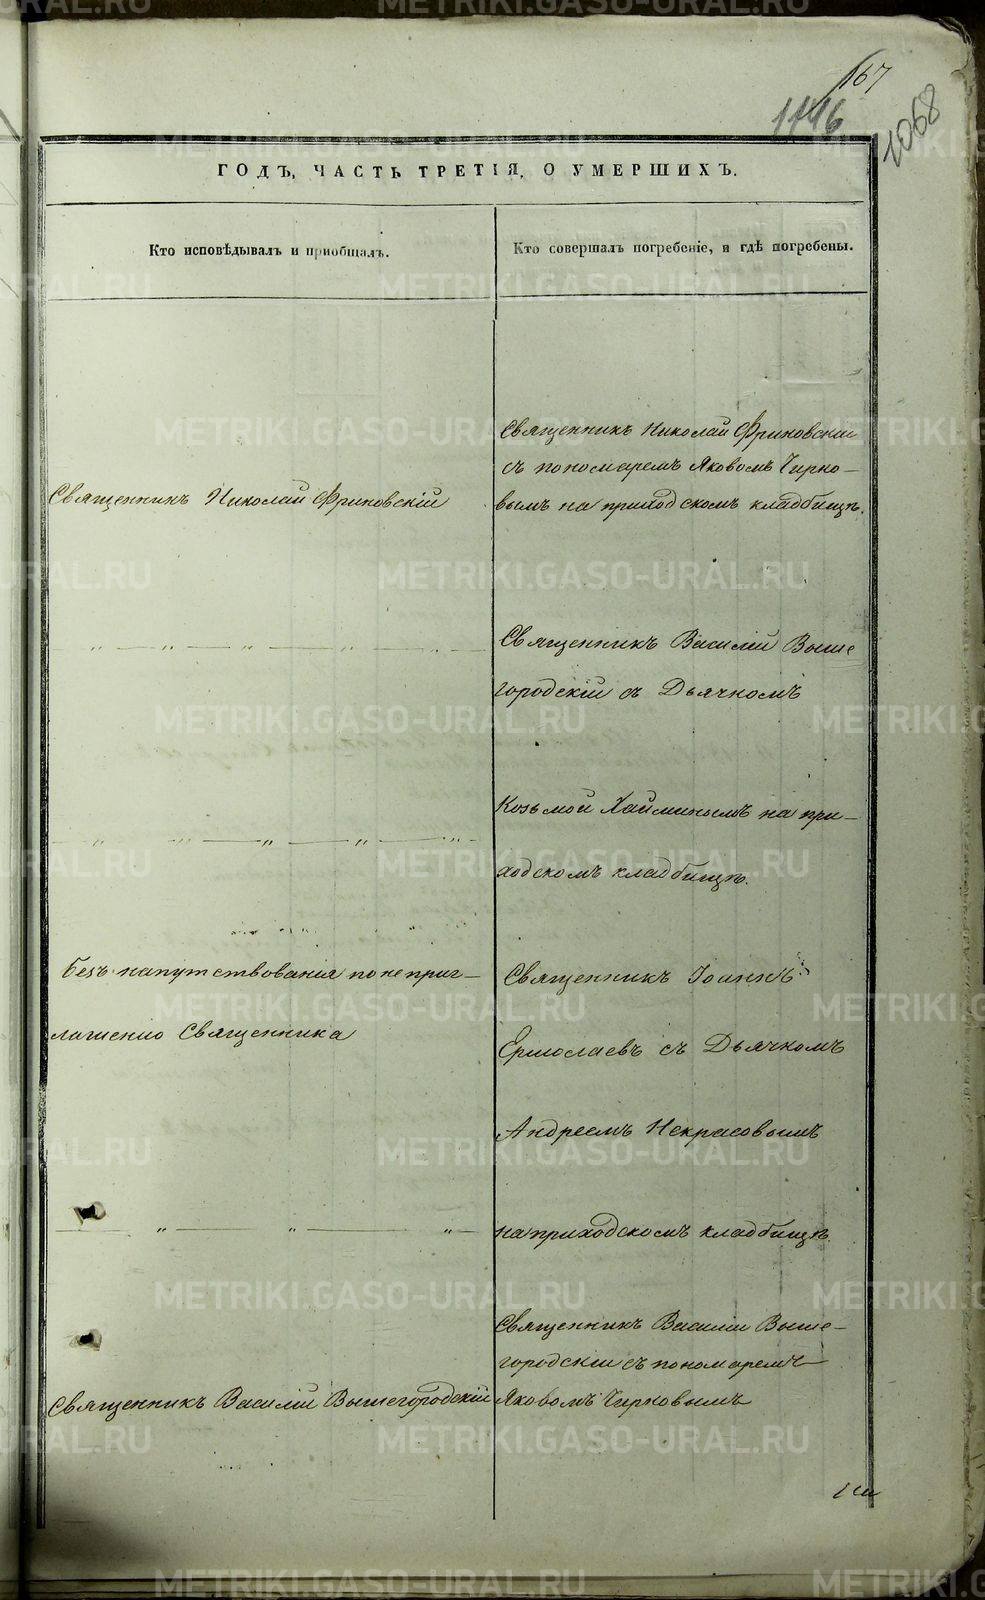 167
1146
1068
ГОДЪ, ЧАСТЬ ТРЕТІЯ, О УМЕРШИХЪ.
Кто исповѣдывалъ и пріобщалъ.
Кто совершалъ погребеніе, и гдѣ погребены.
Священникъ Николай Фриновскій
Священникъ Николай Фриновскій
съ пономаремъ Яковомъ Чирно-
вымъ на приходскомъ кладбищѣ.
— „ — „ — „ — „ — „ —
Священникъ Василій Выше
городскій съ Дьячкомъ
— „ — „ — „ — „ — „ —
Козьмой Хайминымъ на при-
ходскомъ кладбищѣ.
Безъ напутствованія по не приг-
лашенію Священника
Священникъ Іоаннъ
Ермолаевъ съ Дьячкомъ
Андреемъ Некрасовымъ
— „ — „ — „ —
на приходскомъ кладбищѣ.
Священникъ Василій Вышегородскій
Священникъ Василій Выше-
городскій съ пономаремъ
Яковомъ Чирновымъ
METRIKI.GASO-URAL.RU